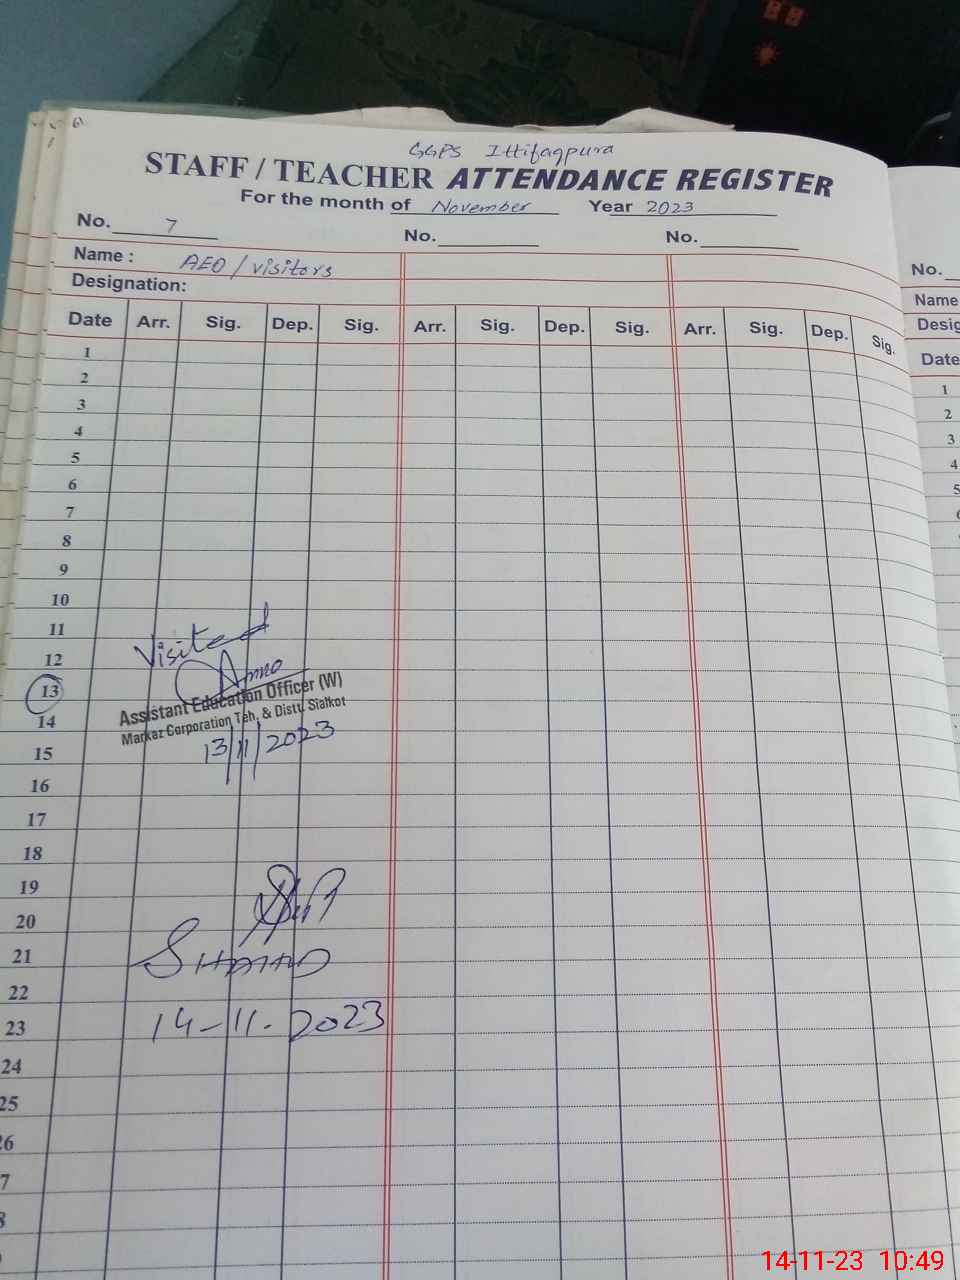 GGPS Ittifaqpura
STAFF / TEACHER ATTENDANCE REGISTER
For the month of November Year 2023
No. 7 No. No.
Name : AEO / visitors
Designation:
Date Arr. Sig. Dep. Sig. Arr. Sig. Dep. Sig. Arr. Sig. Dep. Sig.
1
2
3
4
5
6
7
8
9
10
11
12
13
14
15
16
17
18
19
20
21
22
23
24
25
26
7
8
Visited
Assistant Education Officer (W)
Markaz Corporation Teh. & Distt. Sialkot
13/11/2023
14-11-2023
No.
Name
Desig
Date
1
2
3
4
5
6
14-11-23 10:49